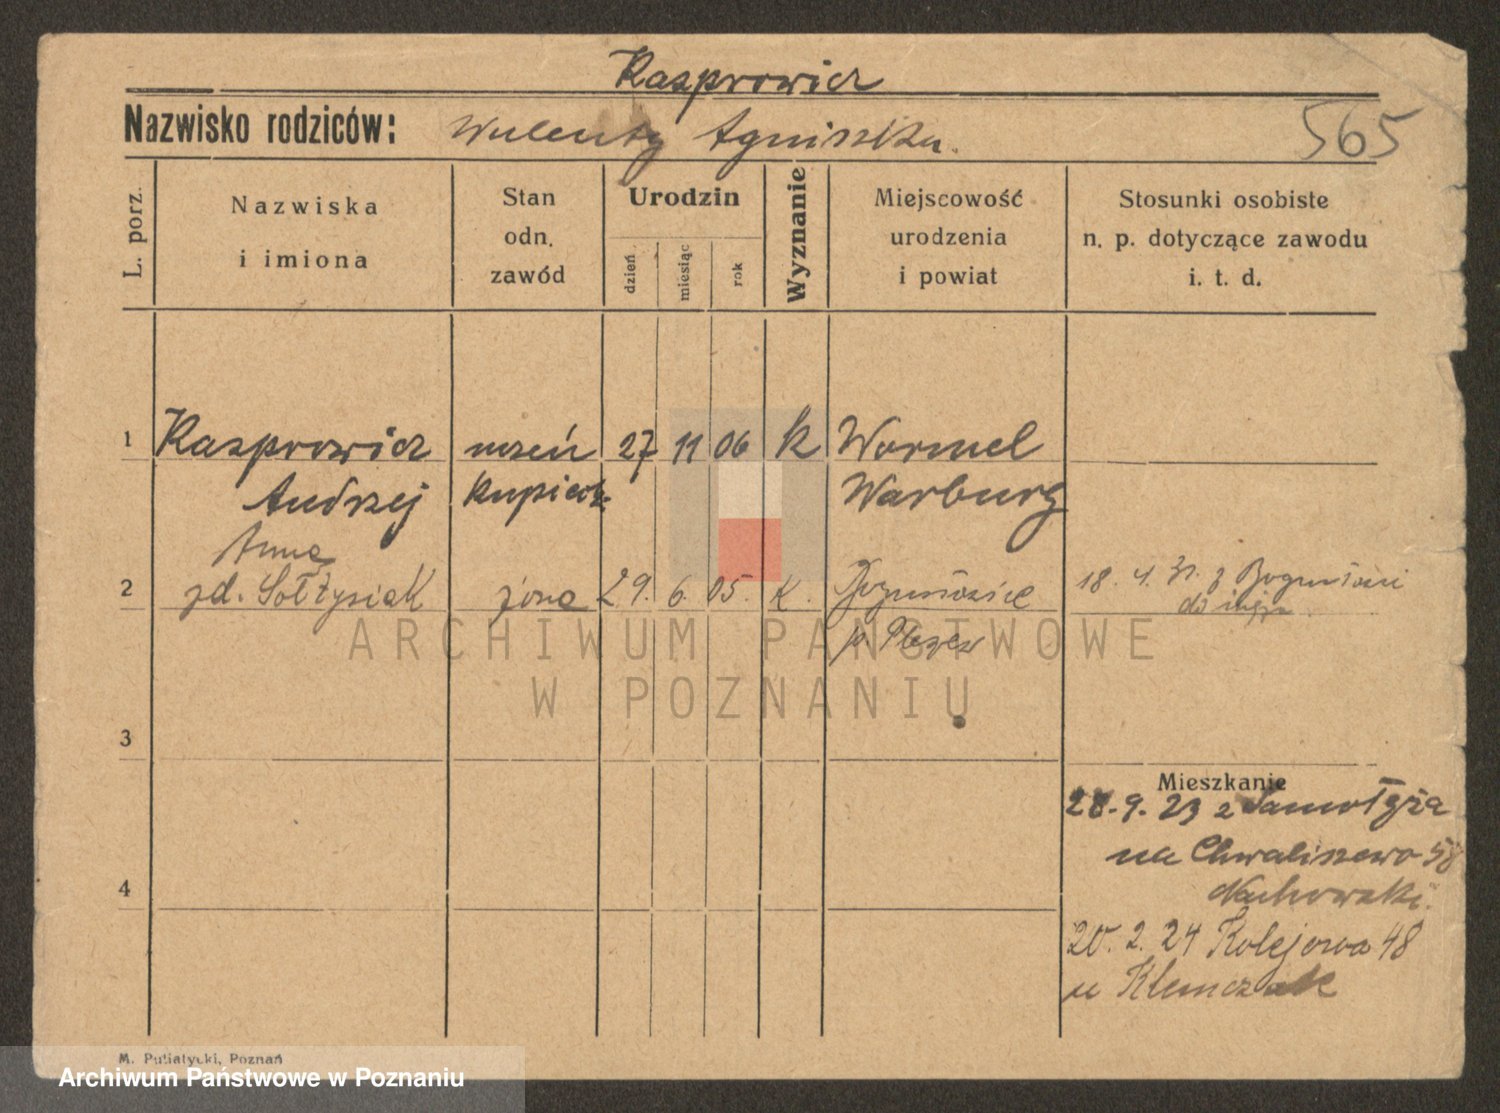 Kasprowicz
Nazwisko rodziców: Walenty Agniszka.
565
L. porz.
Nazwiska
i imiona
Stan
odn.
zawód
Urodzin
dzień
miesiąc
rok
Wyznanie
Miejscowość
urodzenia
i powiat
Stosunki osobiste
n. p. dotyczące zawodu
i. t. d.
1 Kasprowicz uczeń 27 11 06 k Wormel
Andrzej kupieck. Warburg
Anna
2 zd. Sołtysiak żona 29. 6. 05. k. 18. 4. 31. z
p. Plezew
3
Mieszkanie
9. 23 z Samotęża
4
na Chwaliszewo 58
Nachowski.
20. 2. 24 Kolejowa 48
u Klemczak
M. Putiatycki, Poznań
ARCHIWUM PAŃSTWOWE
W POZNANIU
Archiwum Państwowe w Poznaniu